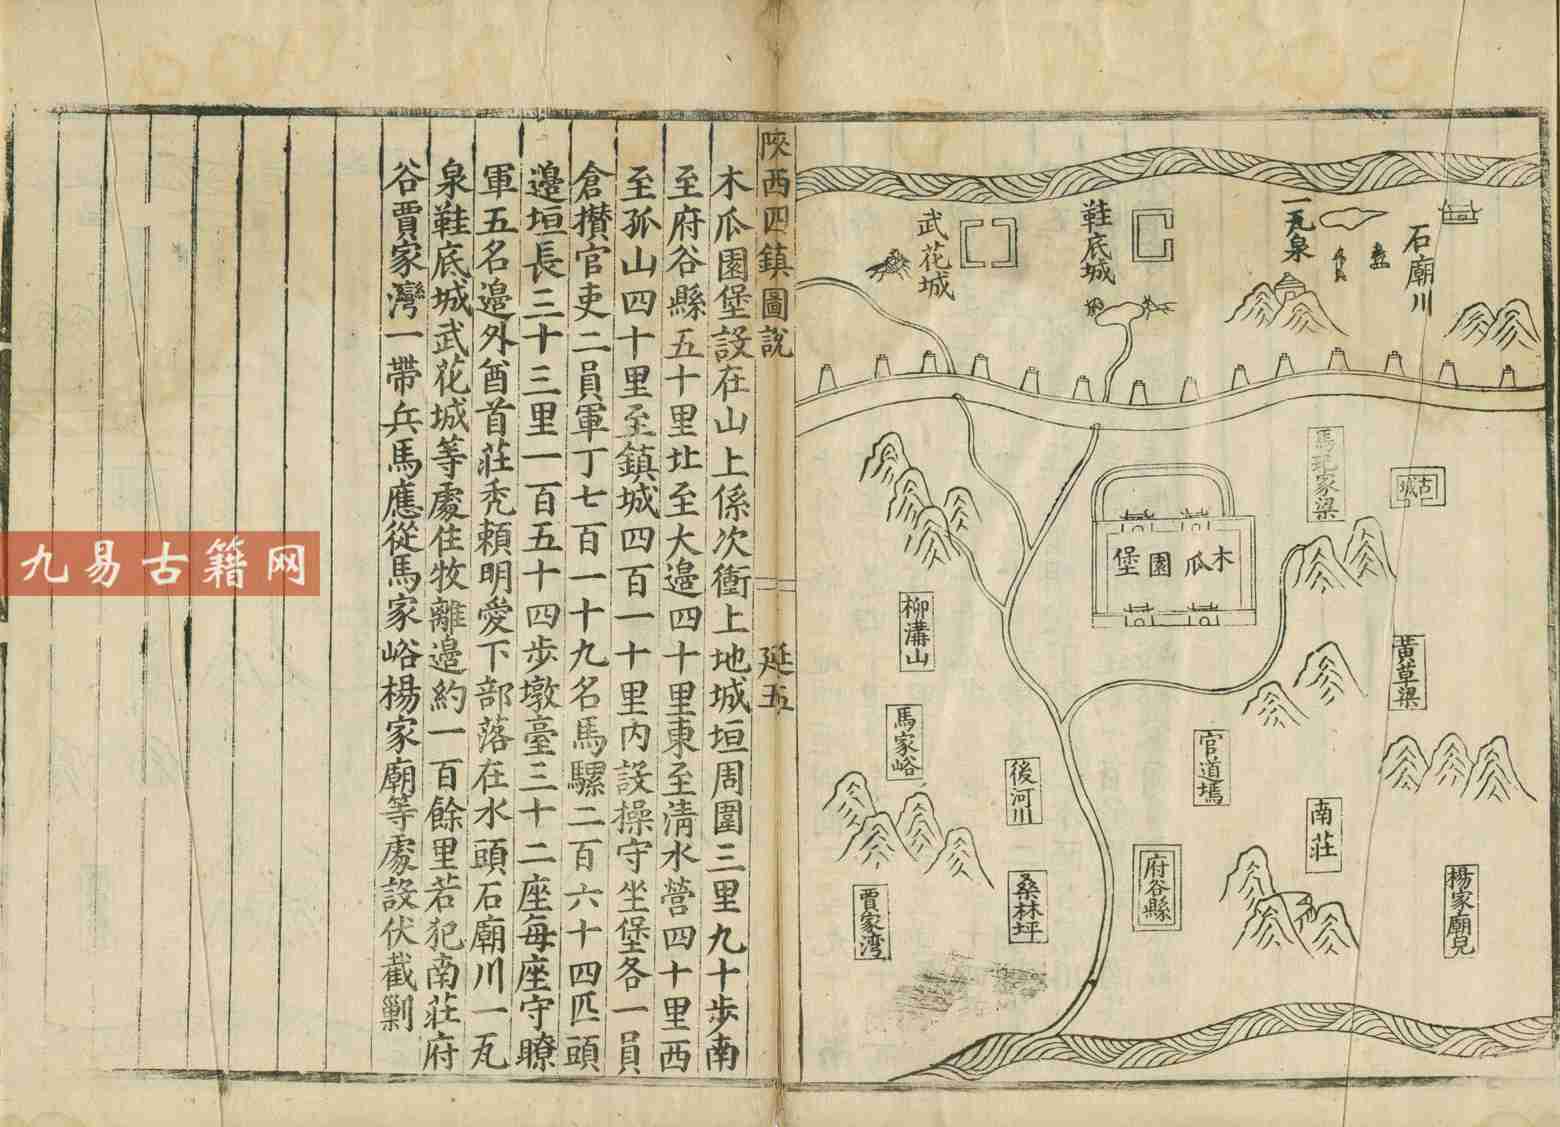 石廟川
一瓦泉
鞋底城
武花城
古城
馬圯家梁
木瓜園堡
黃草梁
柳溝山
馬家峪
官道墕
後河川
南莊
府谷縣
桑林坪
賈家湾
楊家廟兒
陝西四鎮圖說
延五
木瓜園堡設在山上係次衝上地城垣周圍三里九十步南
至府谷縣五十里北至大邊四十里東至清水營四十里西
至孤山四十里至鎮城四百一十里內設操守坐堡各一員
倉攅官吏二員軍丁七百一十九名馬騾二百六十四匹頭
邊垣長三十三里一百五十四步墩臺三十二座每座守瞭
軍五名邊外酋首莊禿賴明愛下部落在水頭石廟川一瓦
泉鞋底城武花城等處住牧離邊約一百餘里若犯南莊府
谷賈家灣一帶兵馬應從馬家峪楊家廟等處設伏截剿
九易古籍网